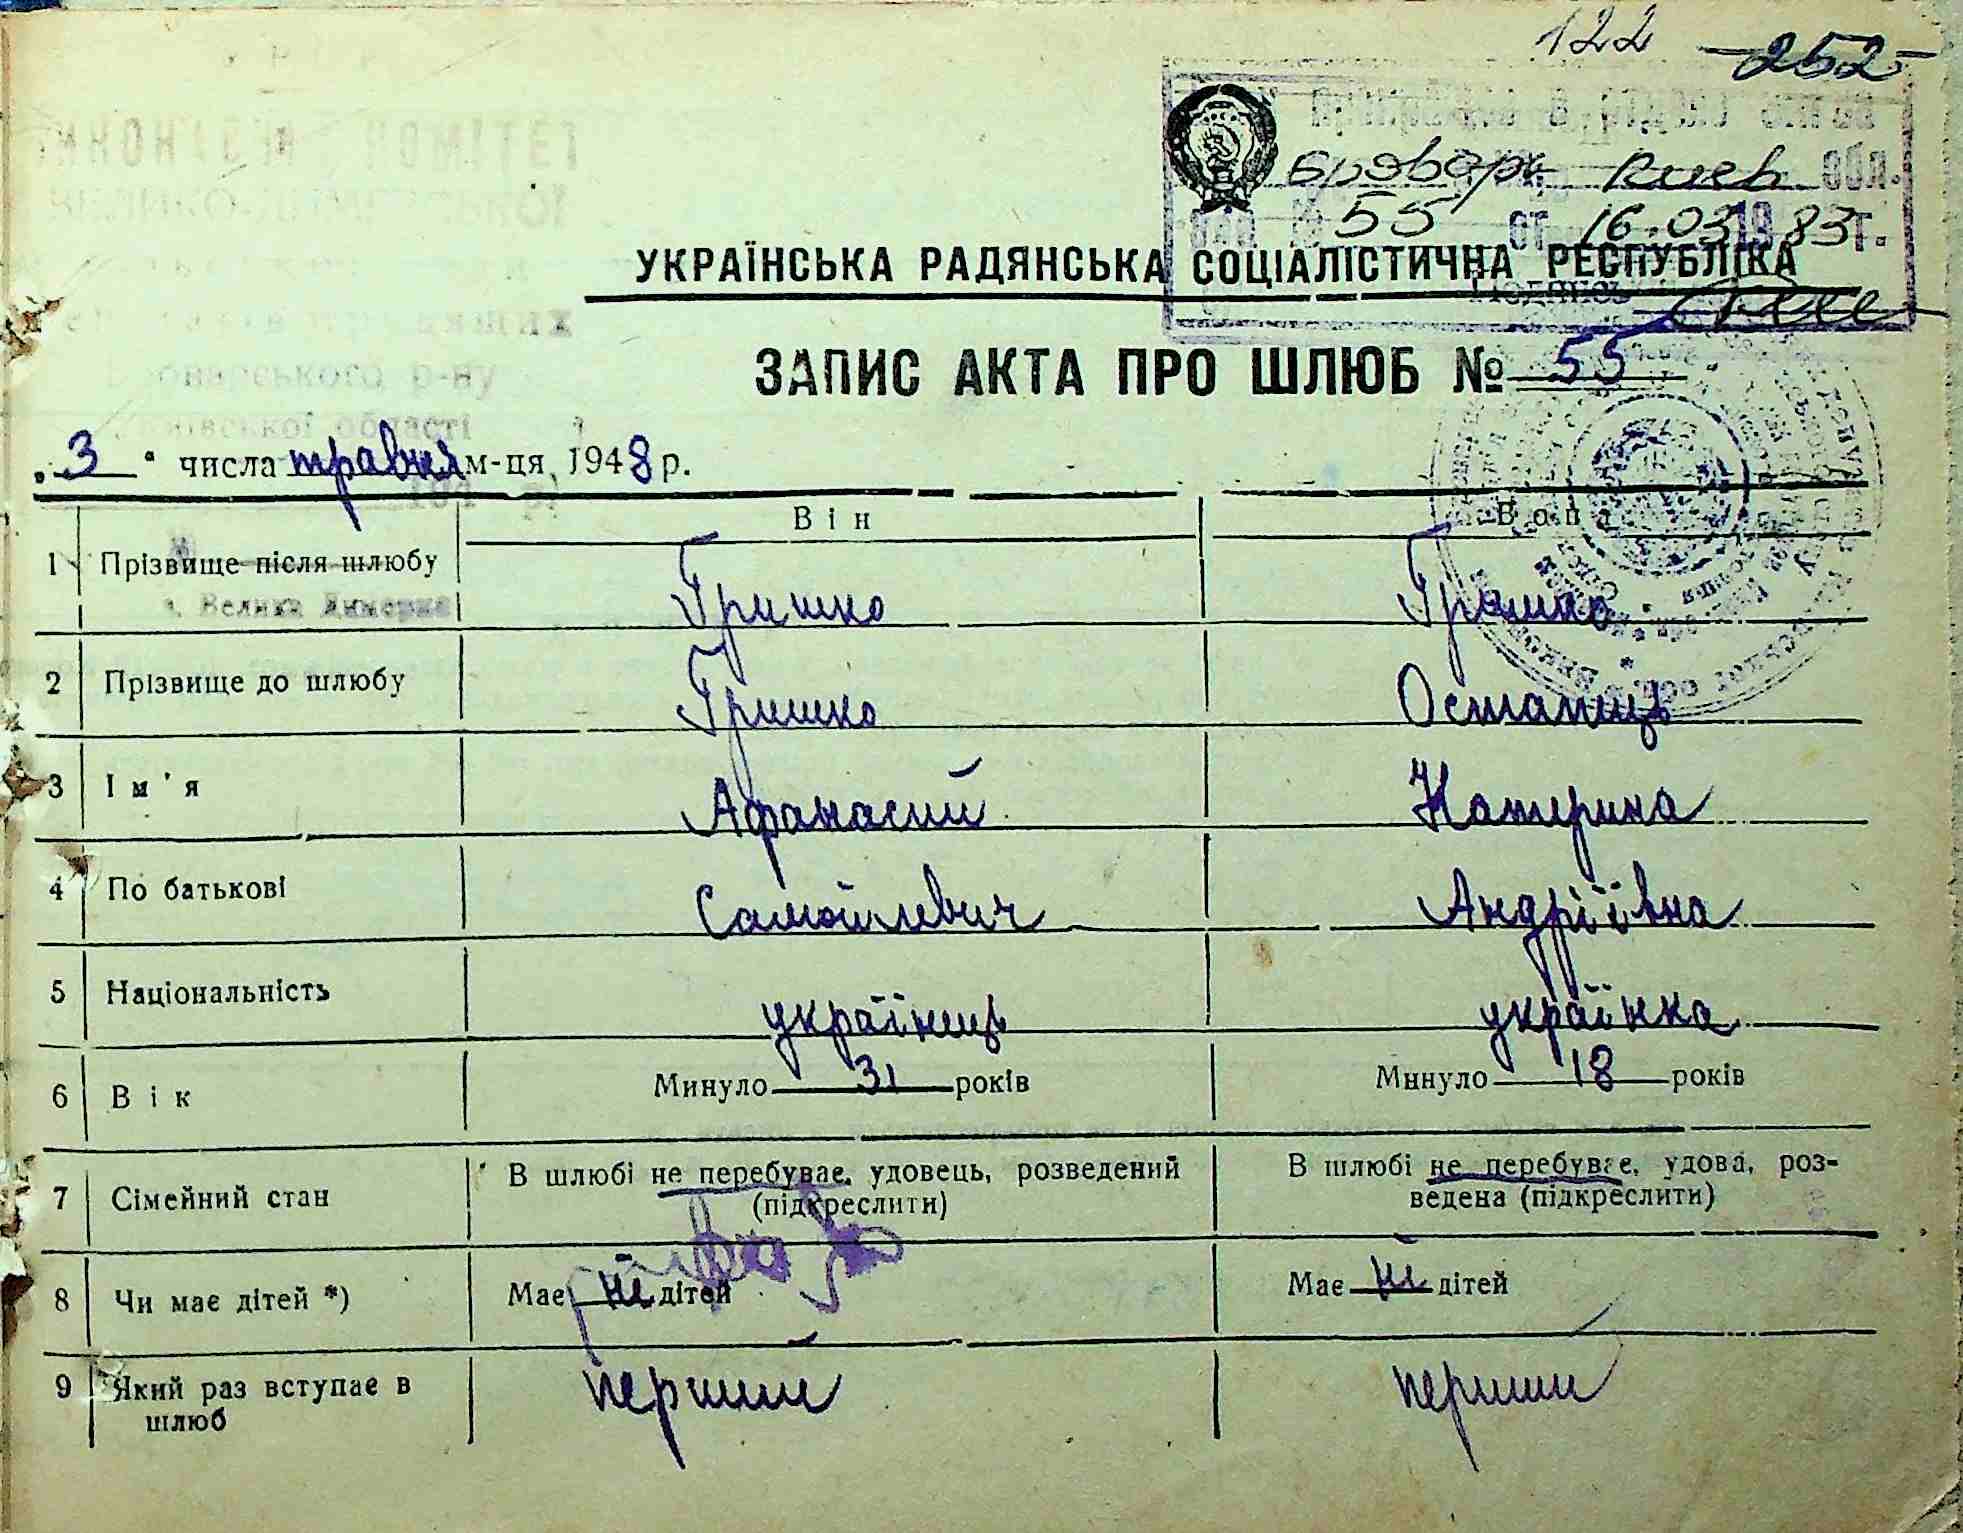 122 252
Бровары Киев обл.
55 от 16.03 1983 г.
УКРАЇНСЬКА РАДЯНСЬКА СОЦІАЛІСТИЧНА РЕСПУБЛІКА
ЗАПИС АКТА ПРО ШЛЮБ № 55
"3" числа травня м-ця 1948 р.
Він Вона
1 Прізвище після шлюбу Гришко Гришко
с. Велика Димерка
2 Прізвище до шлюбу Гришко Остапець
3 Ім'я Афанасий Катерина
4 По батькові Самойлевич Андріївна
5 Національність українець українка
6 Вік Минуло 31 років Минуло 18 років
7 Сімейний стан В шлюбі не перебуває, удовець, розведений (підкреслити) В шлюбі не перебуває, удова, роз-
ведена (підкреслити)
8 Чи має дітей *) Має ні дітей Має ні дітей
9 Який раз вступає в перший перший
шлюб